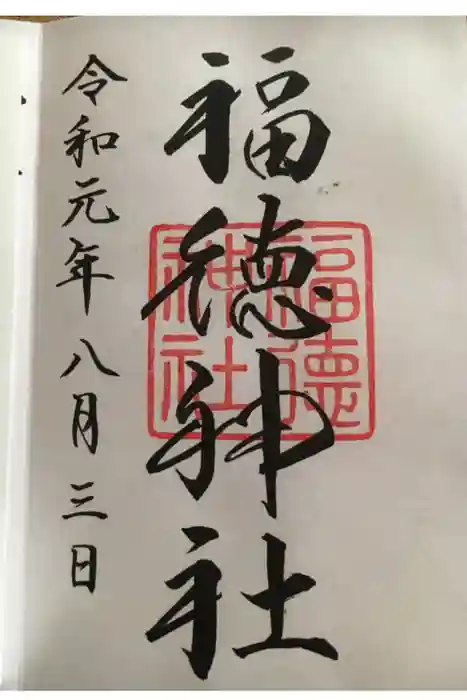 福徳神社
福徳
神社
令和元年八月三日